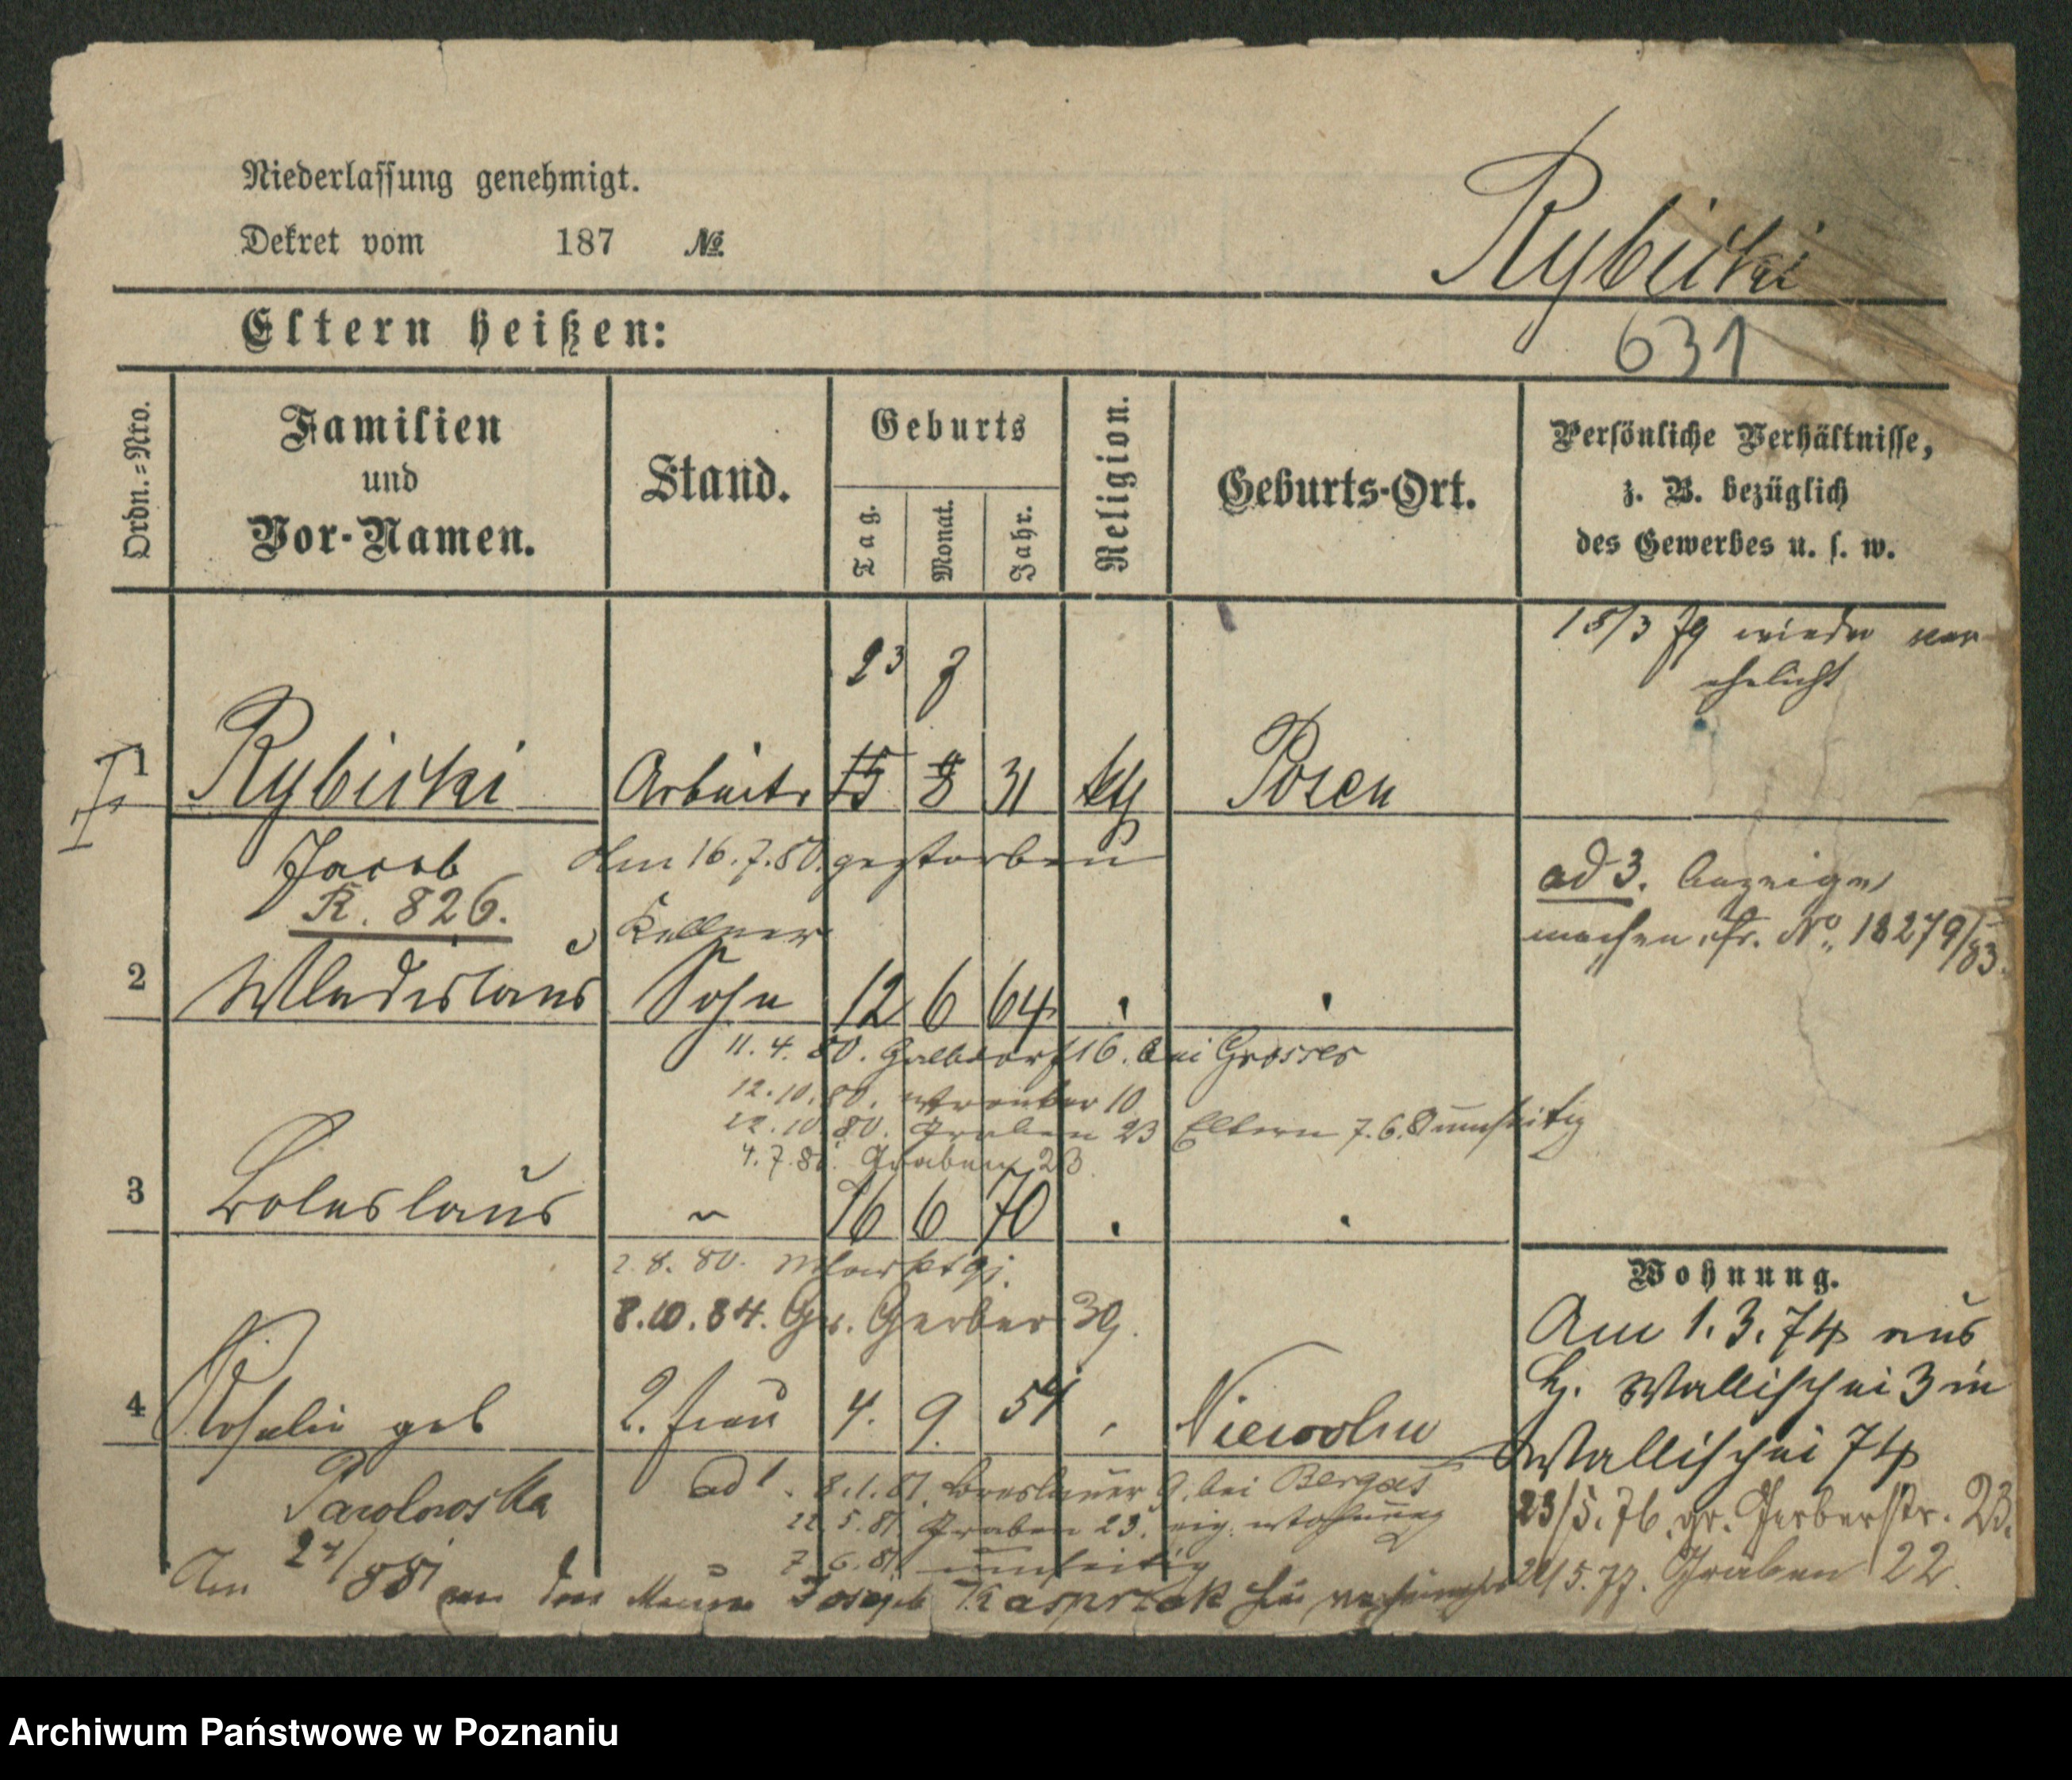 Niederlassung genehmigt.
Dekret vom 187 №
Rybicki
631
Eltern heißen:
Ordn.=Nro.
Familien
und
Vor-Namen.
Stand.
Geburts
Tag.
Monat.
Jahr.
Religion.
Geburts-Ort.
Persönliche Verhältnisse,
z. B. bezüglich
des Gewerbes u. s. w.
18/3 79 wieder ver
ehelicht
23
1 Rybicki Arbeiter 15 8 31 kth Posen
Jacob Am 16.7.80. gestorben
R. 826.
ad 3. Anzeige
machen, fr. No. 18279/83.
Kellner
2 Wladislaus Sohn 12 6 64
11. 4. 80. Halbdorf 16. bei Grosser
12.10.80. Wronker 10
22.10.80. Graben 23 Eltern 7.6. umseitig
4.7.8 Graben 23
3 Boleslaus 16 6 70
2.8.80. Markt 91.
8.10.84. Gr. Gerber 39.
4 Rosalie geb 2. Frau 4. 9. 54
Pawlowska
ad 1. 8.1.81. Breslauer 9. bei
22.5.81. Graben 23. eig. Wohnung
7.6.81 umseitig
Am 24/1 88 an den Maurer Joseph Kasprzak
Wohnung.
Am 1.3.74 aus
Wallischei 3 in
Wallischei 74
23/5.76. gr. Gerberstr. 23.
5.77. Graben 22.
Archiwum Państwowe w Poznaniu